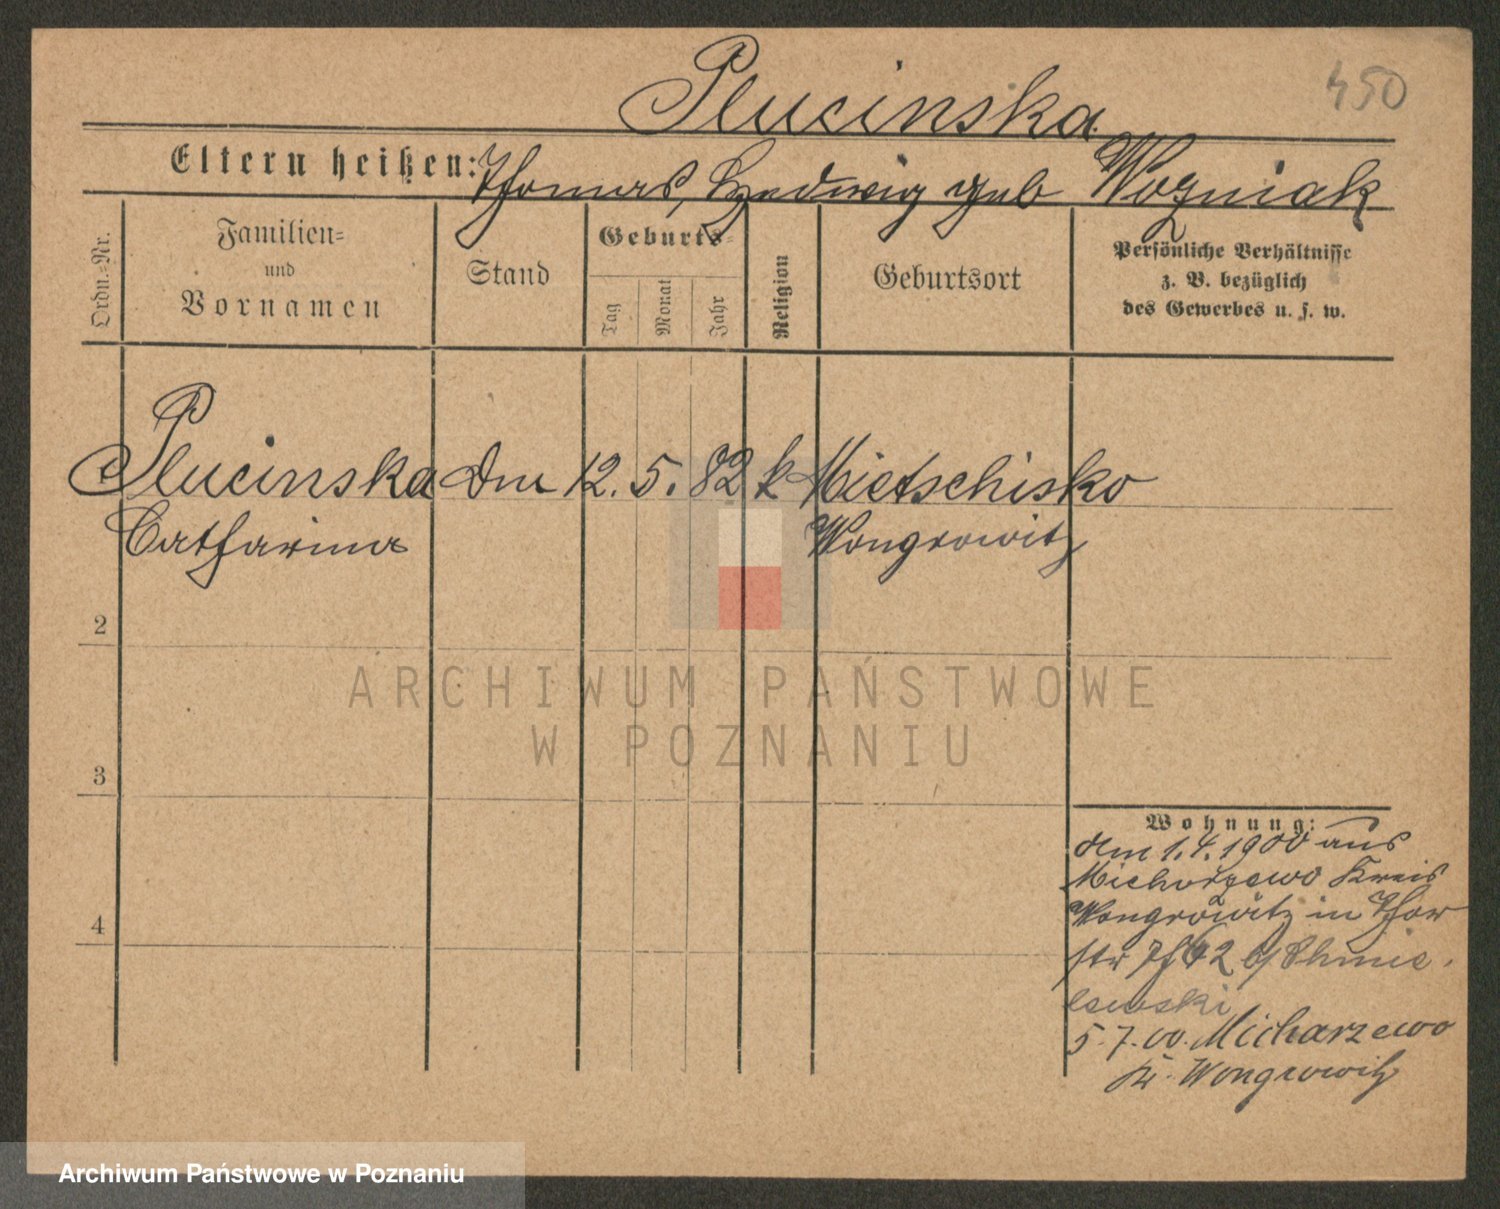 Plucinska
450
Eltern heißen: Thomas, Hedwig geb Wozniak
Ordn.=Nr.
Familien=
und
Vornamen
Stand
Geburts=
Tag
Monat
Jahr
Religion
Geburtsort
Persönliche Verhältnisse
z. B. bezüglich
des Gewerbes u. s. w.
Plucinska Dm 12. 5. 82 k Mietschisko
Catharina Wongrowitz
2
3
4
Wohnung:
den 1.4.1900 aus
Michorzewo Kreis
Wongrowitz in Thor
str 62 b/ Chmie
lewski
5.7.00. Micharzewo
Kr. Wongrowitz
ARCHIWUM PAŃSTWOWE
W POZNANIU
Archiwum Państwowe w Poznaniu